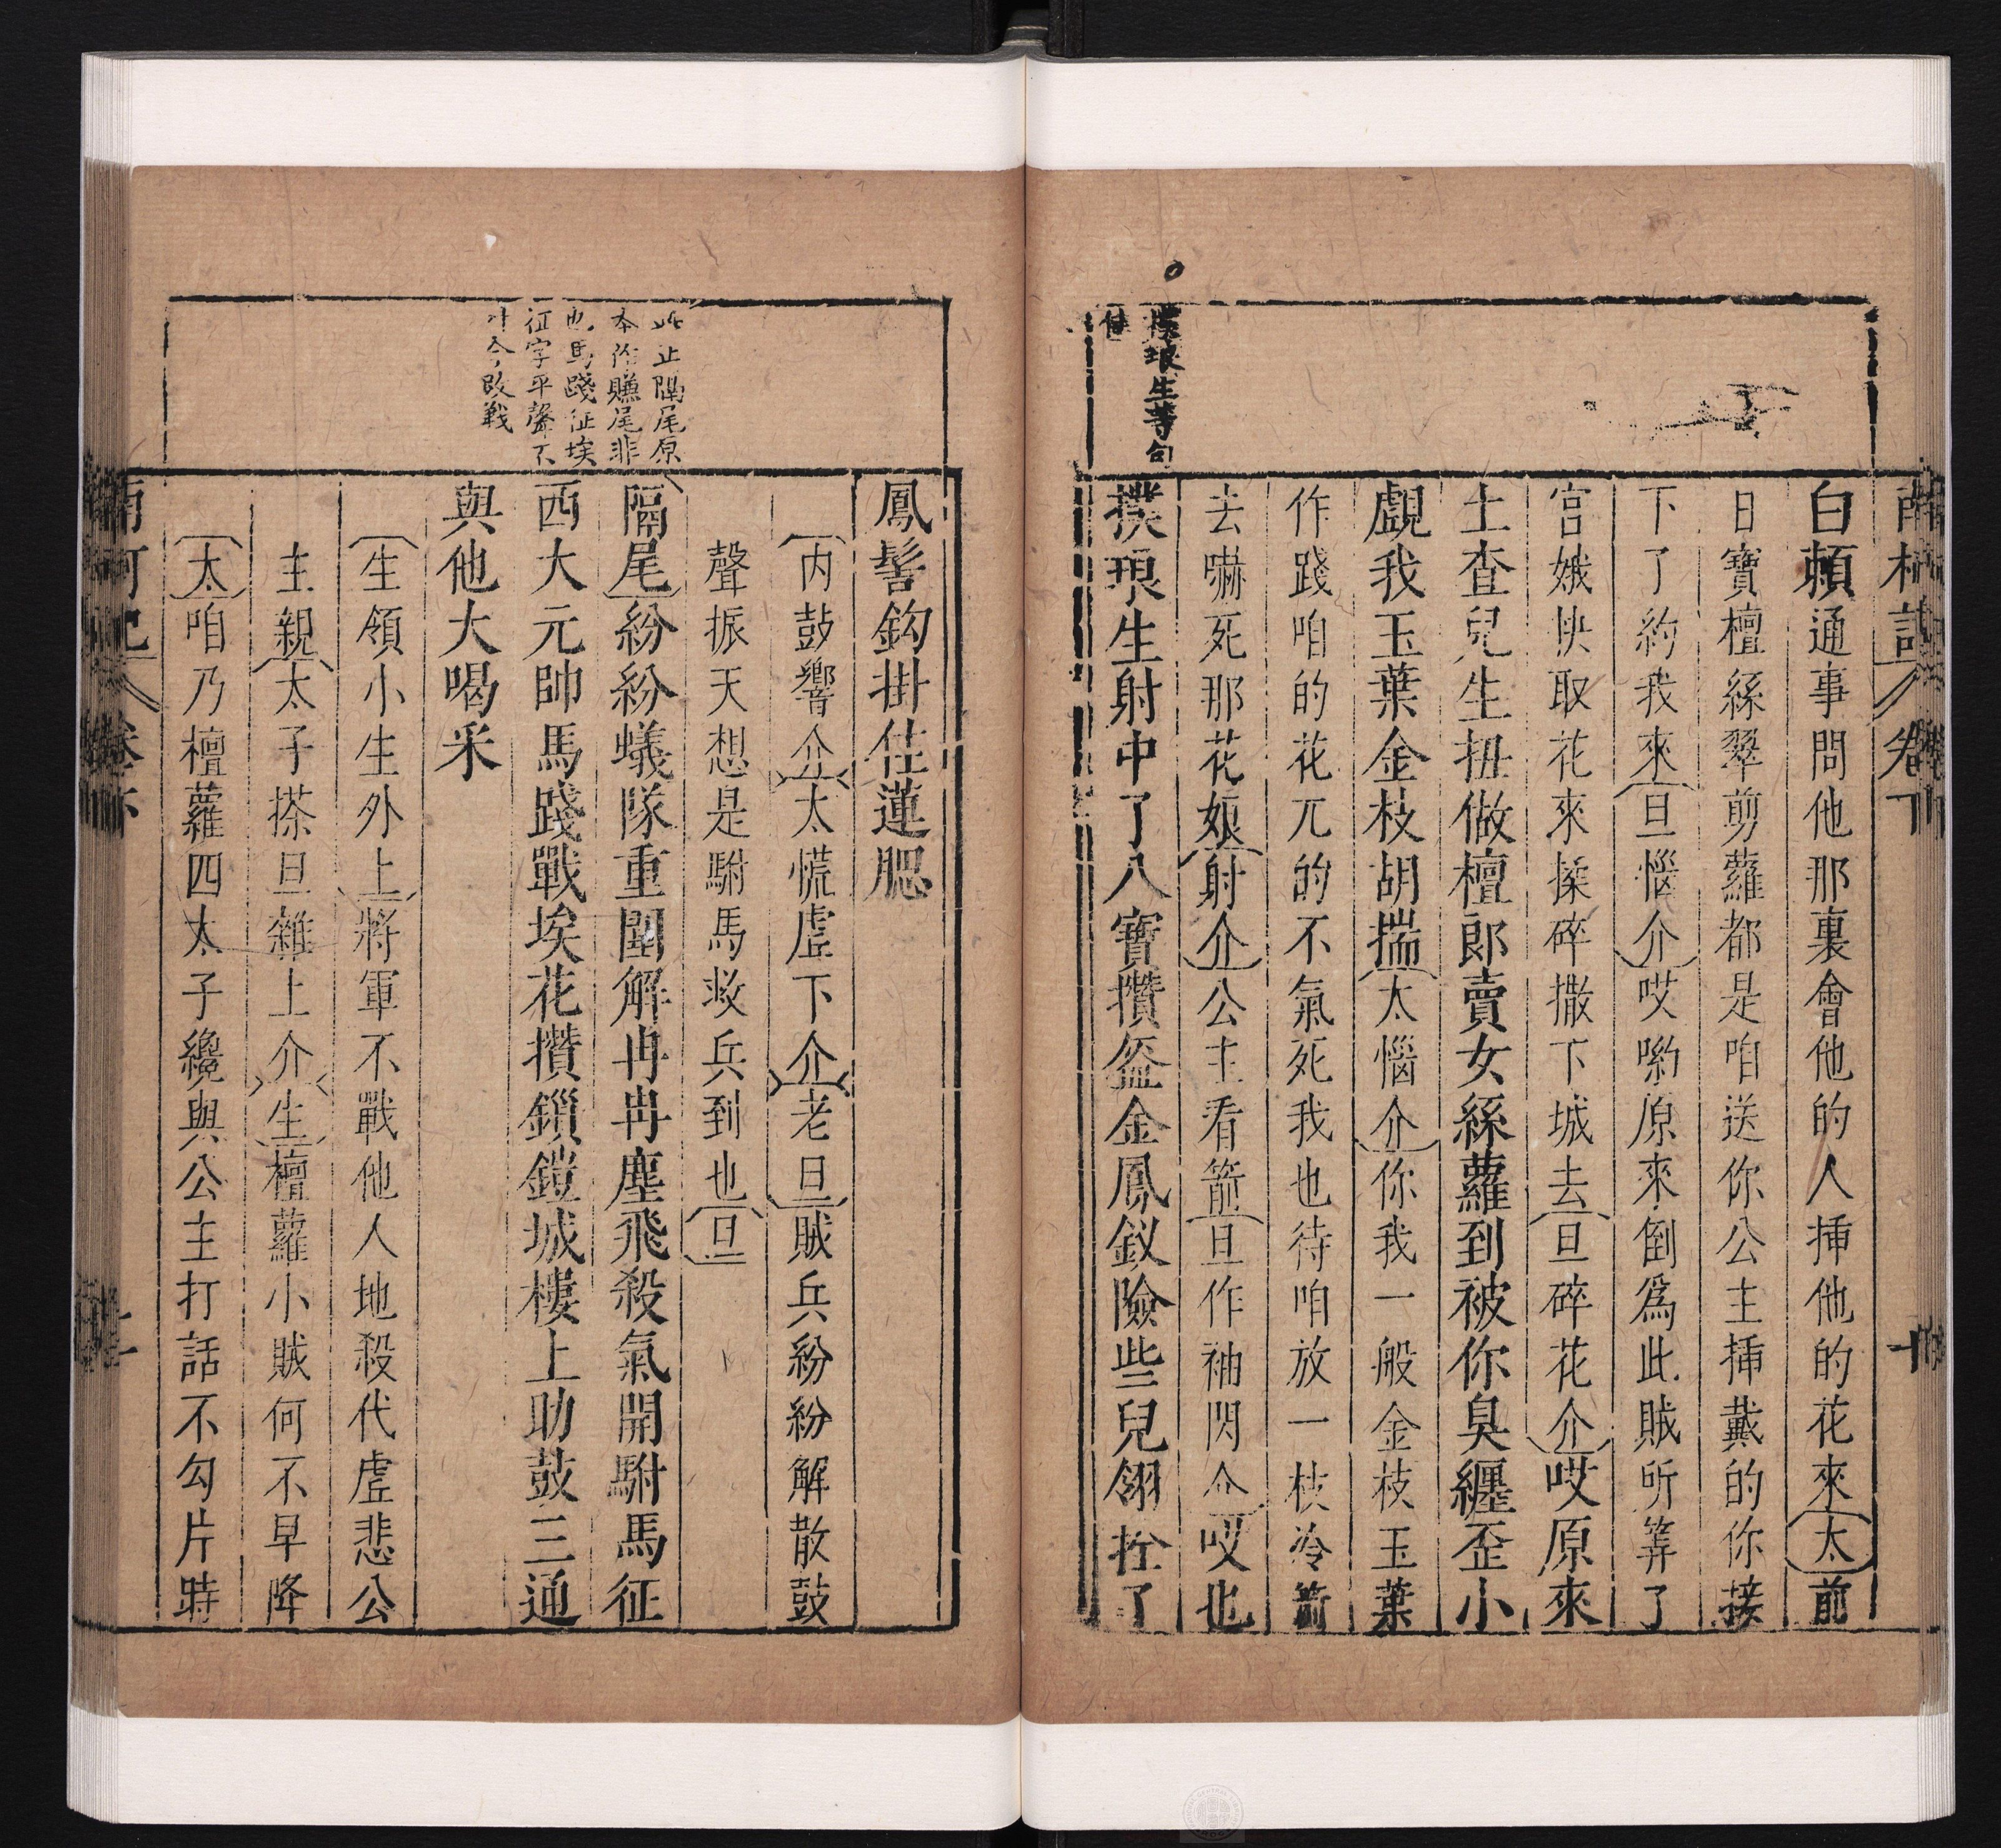 南柯記 卷下 十
撲琅生等句
佳
白頼通事問他那裏會他的人揷他的花來太前
日寶檀絲翠剪蘿都是咱送你公主揷戴的你接
下了約我來旦惱介哎喲原來倒爲此賊所筭了
宮娥快取花來揉碎撒下城去旦碎花介哎原來
土查兒生扭做檀郎賣女絲蘿到被你臭纒歪小
覷我玉葉金枝胡揣太惱介你我一般金枝玉葉
作踐咱的花兀的不氣死我也待咱放一枝冷箭
去嚇死那花娘射介公主看箭旦作袖閃介哎也
撲琅生射中了八寶攢盔金鳳釵險些兒翎拴了
此止隔尾原
本作賺尾非
也馬踐征埃
征字平聲不
叶今改戰
鳳髻鈎掛住蓮腮
內鼓響介太慌虛下介老旦賊兵紛紛解散鼓
聲振天想是駙馬救兵到也旦
隔尾紛紛蟻隊重圍解冉冉塵飛殺氣開駙馬征
西大元帥馬踐戰埃花攢鎖鎧城樓上助鼓三通
與他大喝采
生領小生外上將軍不戰他人地殺伐虛悲公
主親太子搽旦雜上介生檀蘿小賊何不早降
太咱乃檀蘿四太子纔與公主打話不勾片時
南柯記 卷下